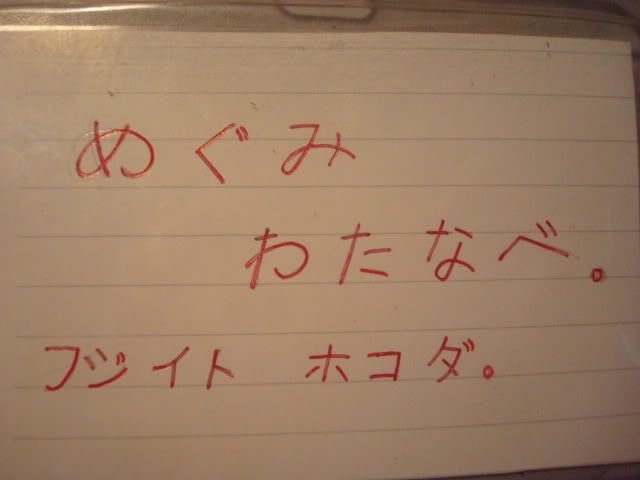 めぐみ
わたなべ。
フジイト ホコダ。